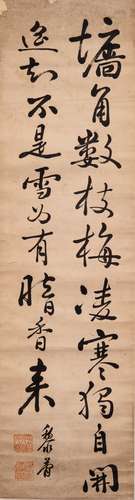 墻角數枝梅凌寒獨自開
遙知不是雪為有暗香來